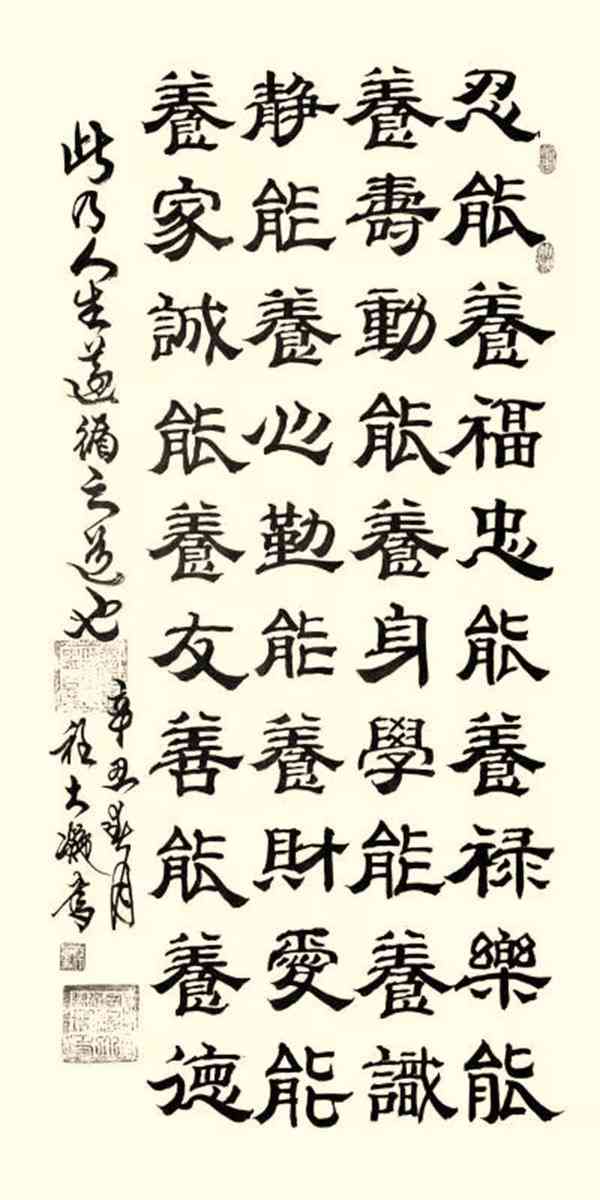 忍能養福忠能養禄樂能
養壽動能養身學能養識
静能養心勤能養財愛能
養家誠能養友善能養德
此乃人生遵循之道也
辛丑春月
程大凝書